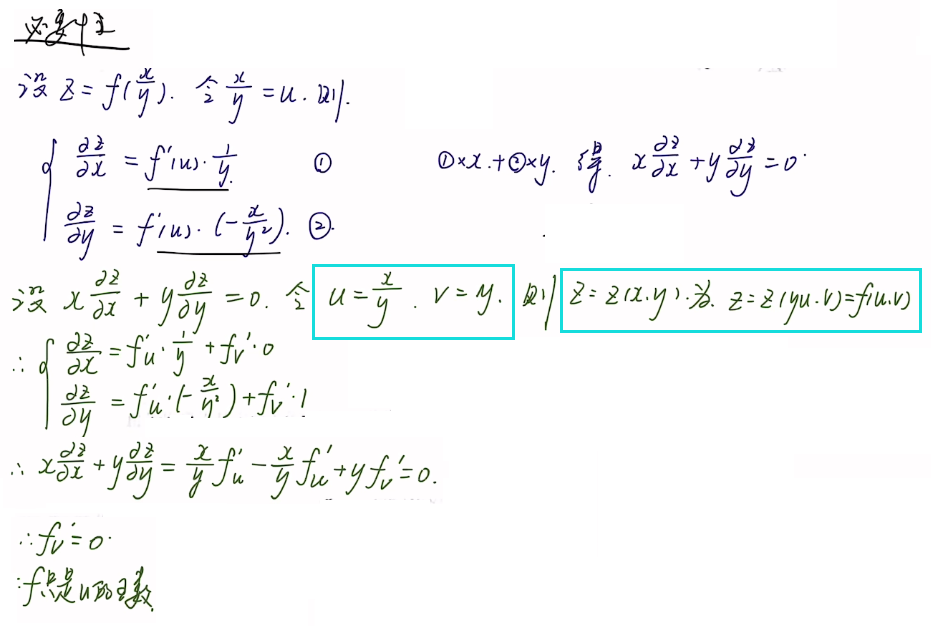 必要性
设 z = f(x/y). 令 x/y = u. 则.
{ ∂z/∂x = f'(u)·1/y. ① ①×x.+②×y. 得. x∂z/∂x + y∂z/∂y = 0.
∂z/∂y = f'(u)·(-x/y²). ②.
设 x∂z/∂x + y∂z/∂y = 0. 令 u = x/y. v = y. 则 z = z(x.y).为. z = z(yu.v)=f(u.v)
∴ { ∂z/∂x = f'u·1/y + fv'·0
∂z/∂y = f'u·(-x/y²)+fv'·1
∴ x∂z/∂x + y∂z/∂y = x/y f'u - x/y fu' + y fv' = 0.
∴ fv' = 0.
∴ f只是u的函数.